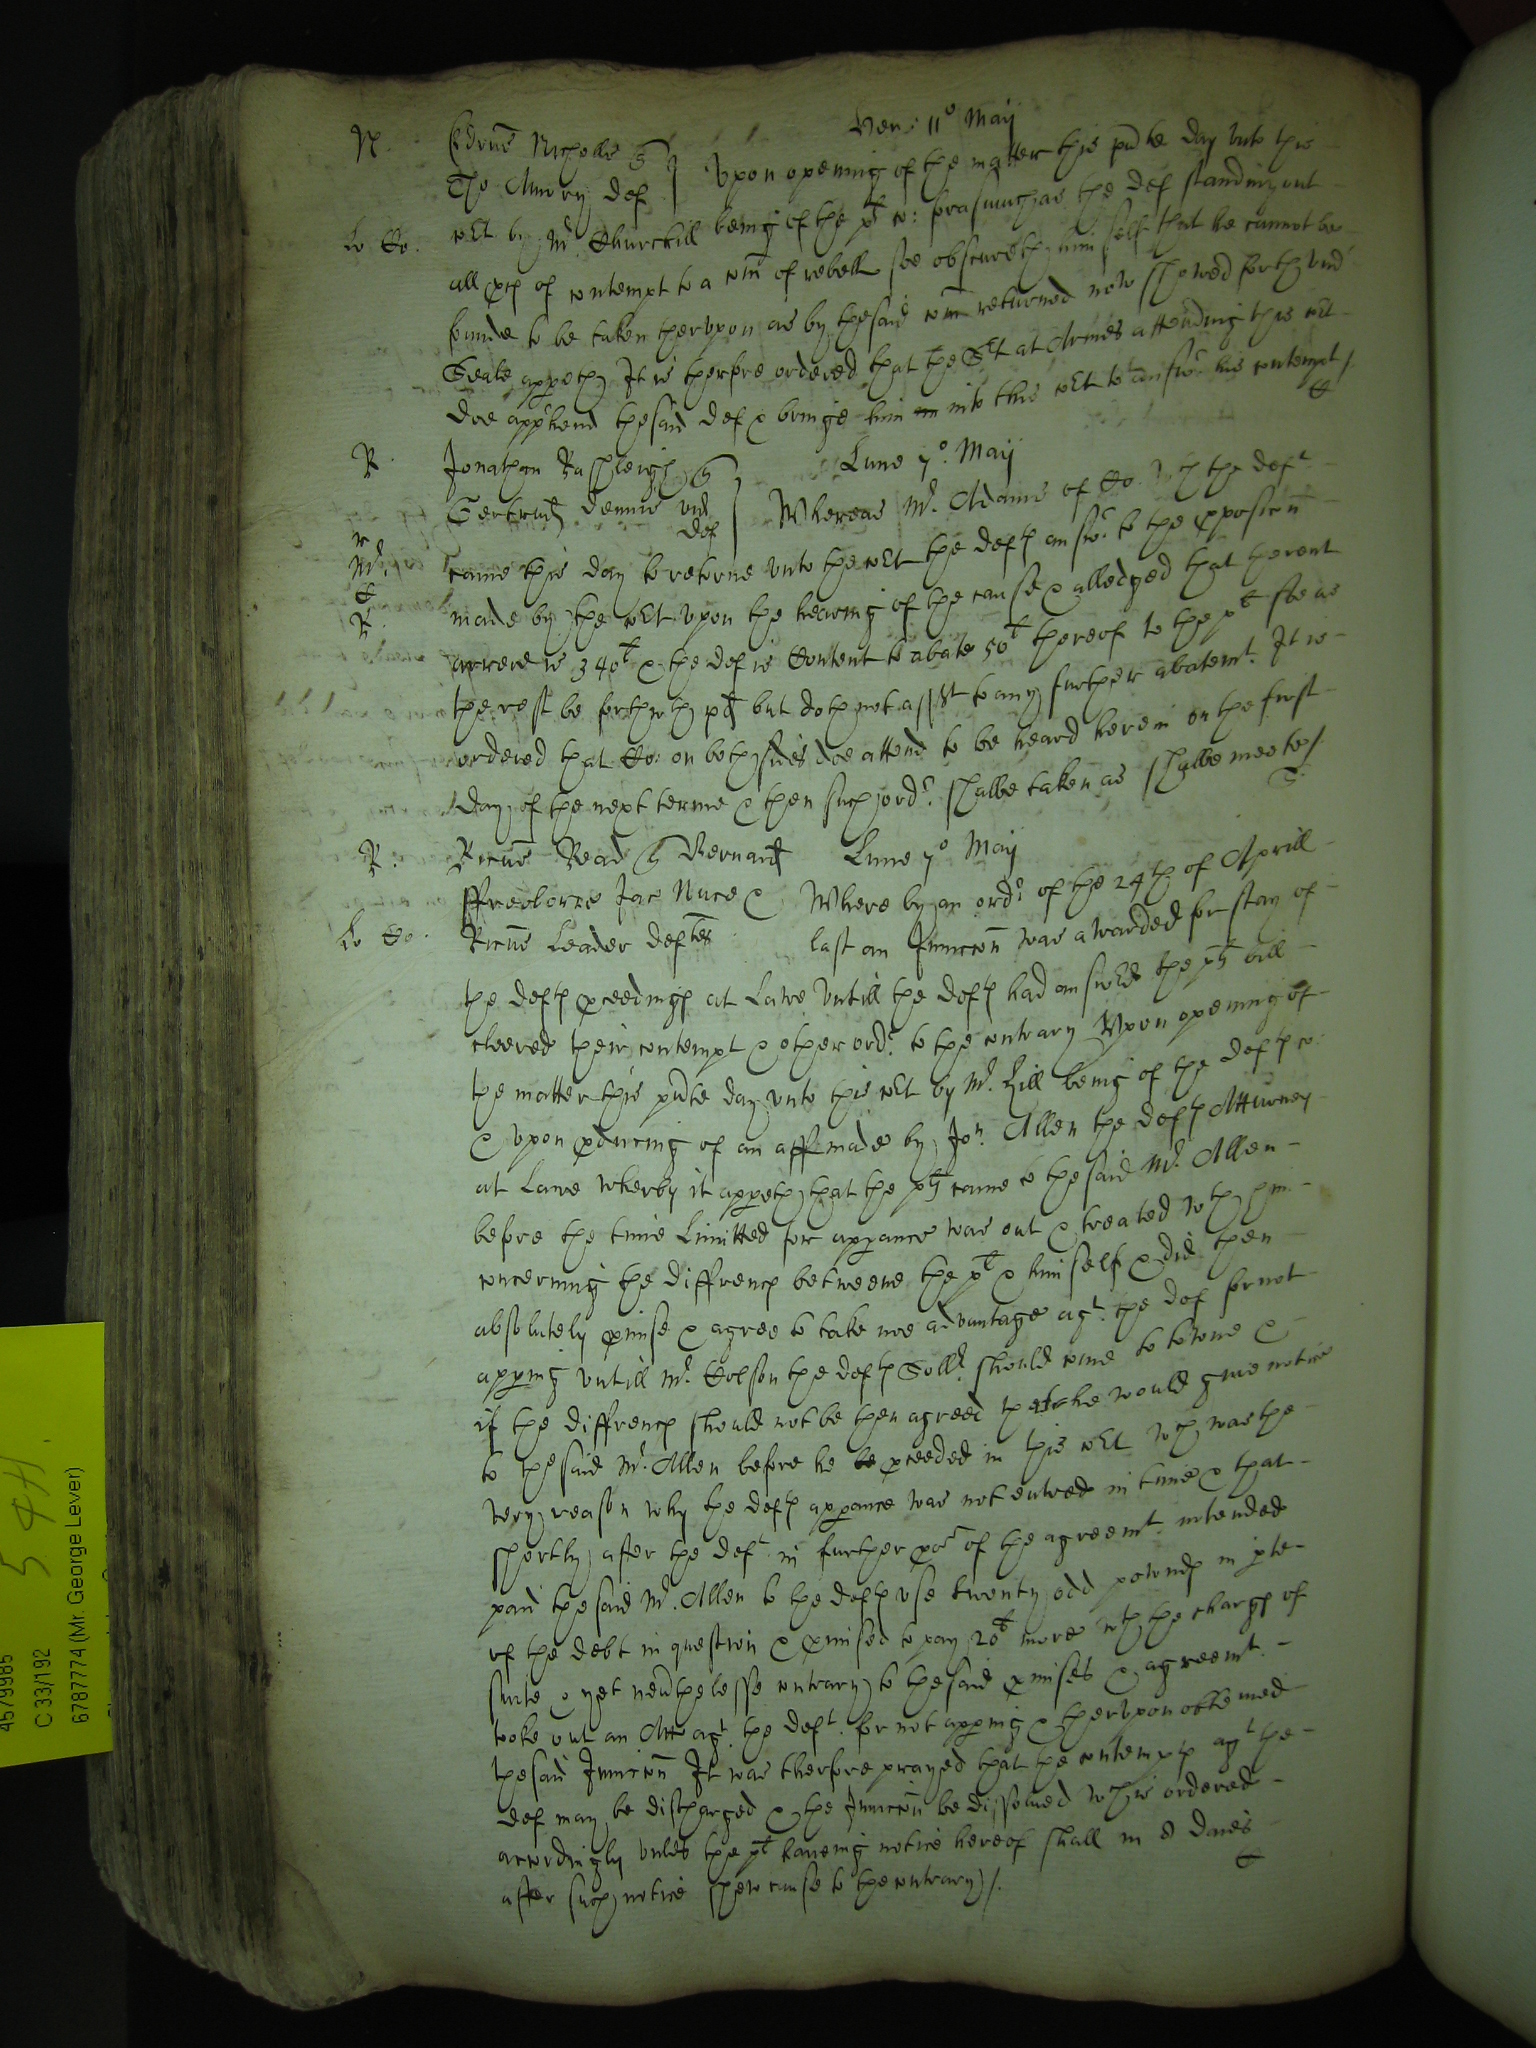 Ven: 11o Maij
N. Edrus Nicholls
Tho Amory def Vpon openinge of the matter this pnte day vnto this
Lo Co. cort by Mr Churchill being of the plt co: forasmuch as the def standing out
all pces of contempt to a com of rebell soe obscureth himself that he cannot be
founde to be taken thervpon as by the said com returned now shewed forth vnd
Seale appeth It is therfore ordered that the Sert at Armes attending this cort
doe apphend the said def & bringe him into this cort to answr his contempt /
R. Jonathan Rashleigh Lune 7o Maij
Gertrud Dennis vid def Whereas Mr. Adams of Co. wth the deft.
Mr. came this day to returne vnto the cort the defts answr. to the pposicon
R. made by the cort vpon the hearing of the cause & alledged that the rent
arreare is 340l & the def is Content to abate 50l thereof to the plt soe as
the rest be forthwth pd but doth not assent to any further abatemt. It is
ordered that Co: on both sides doe attend to be heard herein on the first
day of the next terme & then such ordr. shalbe taken as shalbe meete /.
R. Ricus Read Bernard Lune 7o Maij
ffreeborne Jac Nuce & Where by an ordr of the 24th of Aprill
Lo Co. Ricus Leader deftes last an Iniuccon was awarded for stay of
the defts pceedings at Lawe vntill the defts had answered the plts bill
cleered their contempt & other ordr. to the contrary Vpon opening of
the matter this pnte day vnto this cort by Mr. Hill being of the defts co:
& vpon pducing of an aff made by Jon. Allen the defts Atturney
at Lawe wherby it appeth that the plt came to the said Mr. Allen
before the time Limitted for apparance was out & treated wth him
concerning the diffrences betweene the plt & himself & did then
absolutely pmise & agree to take noe advantage agt. the def for not
apping vntill Mr. Colson the defts Sollr. should come to towne &
if the diffrences should not be then agreed that he would giue notice
to the said Mr. Allen before he pceeded in this cort wch was the
very reason why the defts apparance was not entred in time & that
shortly after the deft. in further pte of the agreemt. intended
paid the said Mr. Allen to the defts vse twenty odd pownds in pte
of the debt in question & pmised to pay 20l more wth the charges of
suite & yet nevthelesse contrary to the said pmises & agreemt.
tooke out an Att agt. the deft. for not apping & thervpon obteined
the said Iniuccon It was therfore prayed that the contempts agt the
def may be discharged & the Iniuccon be dissolued wch is ordered
accordingly vnles the plt haueing notice hereof shall in 8 daies
after such notice shew cause to the contrary /.
4579985
C 33/192
6787774 (Mr. George Lever)